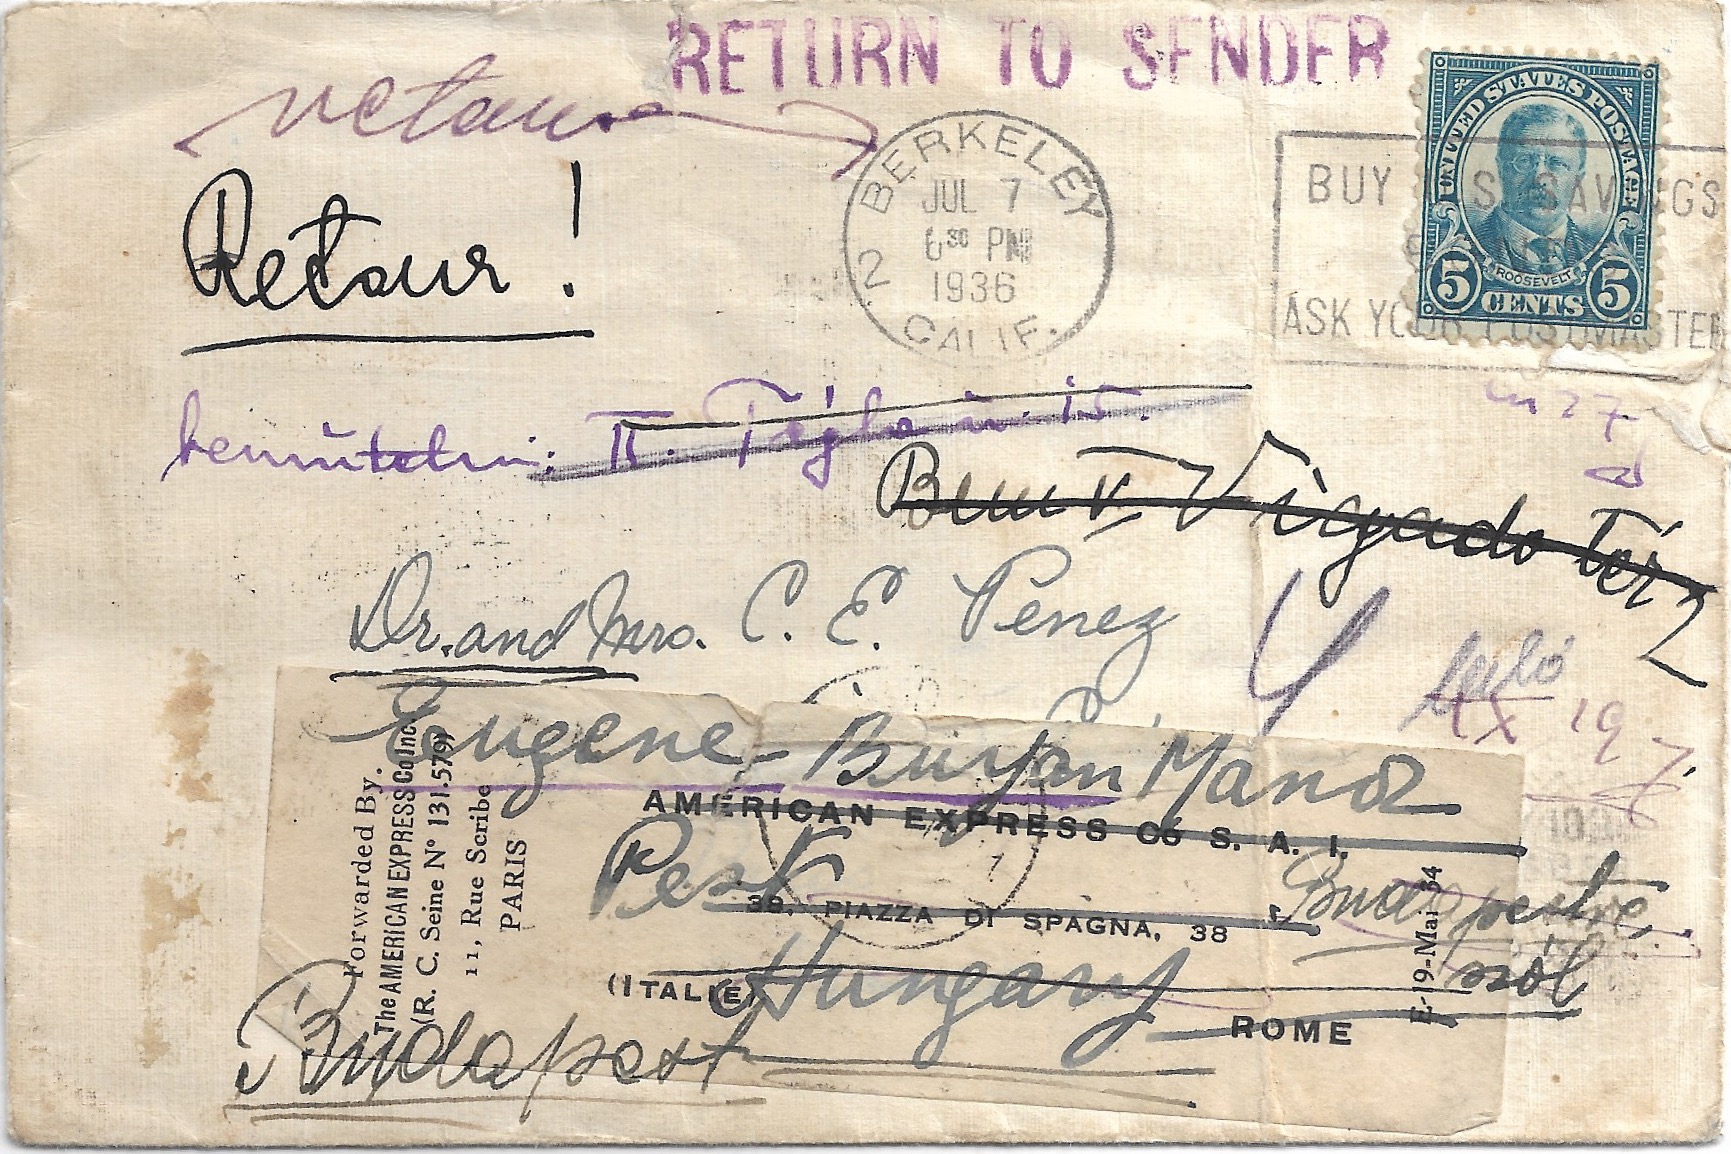 RETURN TO SENDER
retour
Retour!
BERKELEY
JUL 7
6 30 PM
1936
2
CALIF.
UNITED STATES POSTAGE
ROOSEVELT
5 CENTS 5
BUY U.S. SAVINGS
ASK YOUR POSTMASTER
II. Tégla u. 15.
27
V Vigadó tér 2
Dr. and Mrs. C. E. Penez
Eugene-Buryan Manor
AMERICAN EXPRESS Co S. A. I.
Pest
Budapestre
38, PIAZZA DI SPAGNA, 38
ról
(ITALIE)
Hungary
ROME
Budapest
Forwarded By.
The AMERICAN EXPRESS Co Inc.
(R. C. Seine N° 131.579)
11, Rue Scribe
PARIS
E-19-Mai 34
IX 19